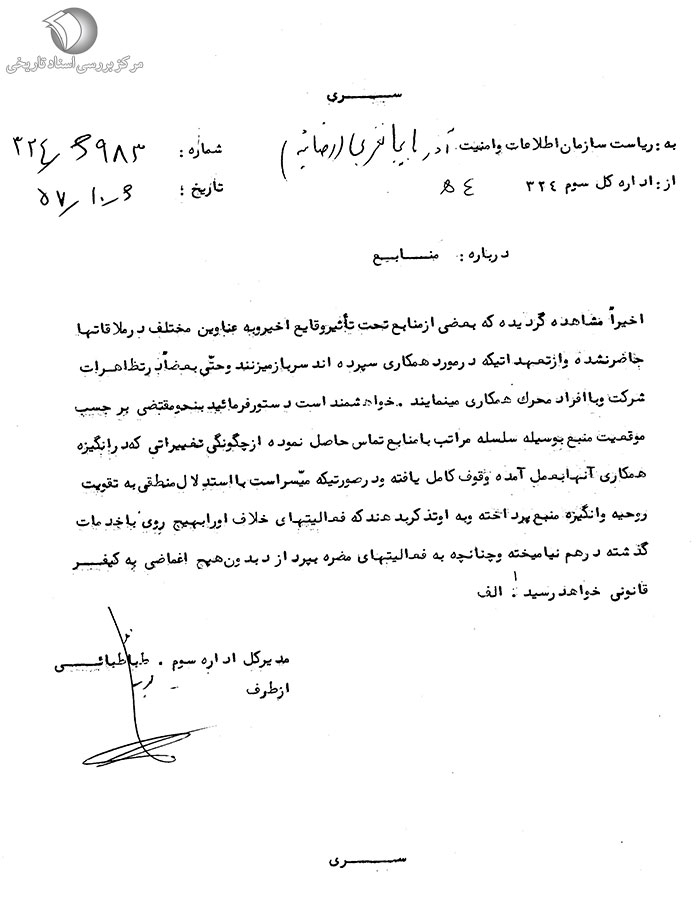 مرکز بررسی اسناد تاریخی
ســـــری
به: ریاست سازمان اطلاعات وامنیت آذربایجانغربی (رضائیه) شماره: ۳۲٤/۶۹۸۳
از: اداره کل سوم ۳۲٤ ٥٤ تاریخ: ۵۷/۱۰/۶
درباره: منــابــع
اخیراً مشاهده گردیده که بعضی ازمنابع تحت تأثیروقایع اخیروبه عناوین مختلف درملاقاتها
حاضرنشده وازتعهداتیکه درمورد همکاری سپرده اند سربازمیزنند وحتّی بعضاًدرتظاهرات
شرکت وباافراد محرك همکاری مینمایند . خواهشمند است دستورفرمائید بنحومقتضی برحسب
موقعیت منبع بوسیله سلسله مراتب بامنابع تماس حاصل نموده ازچگونگی تغییراتی که درانگیزه
همکاری آنهابعمل آمده وقوف کامل یافته ودرصورتیکه میّسراست بااستدلال منطقی به تقویت
روحیه وانگیزه منبع پرداخته وبه اوتذکربدهندکه فعالیتهای خلاف اورابهیچ روی باخدمات
گذشته درهم نیامیخته وچنانچه به فعالیتهای مضره بپردازد بدون هیچ اغماضی به کیفــر
قانونی خواهد رسید . الف
مدیرکل اداره سوم . طباطبائــی
ازطرف
ســـــری